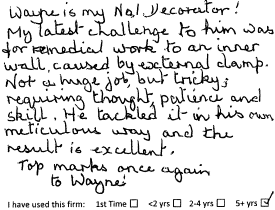 Wayne is my No.1 Decorator!
My latest challenge to him was
for remedial work to an inner
wall, caused by external damp.
Not a huge job but tricky;
requiring thought, patience and
skill. He tackled it in his own
meticulous way and the
result is excellent.
Top marks once again
to Wayne
I have used this firm: 1st Time ☐ <2 yrs ☐ 2-4 yrs ☐ 5+ yrs ☑